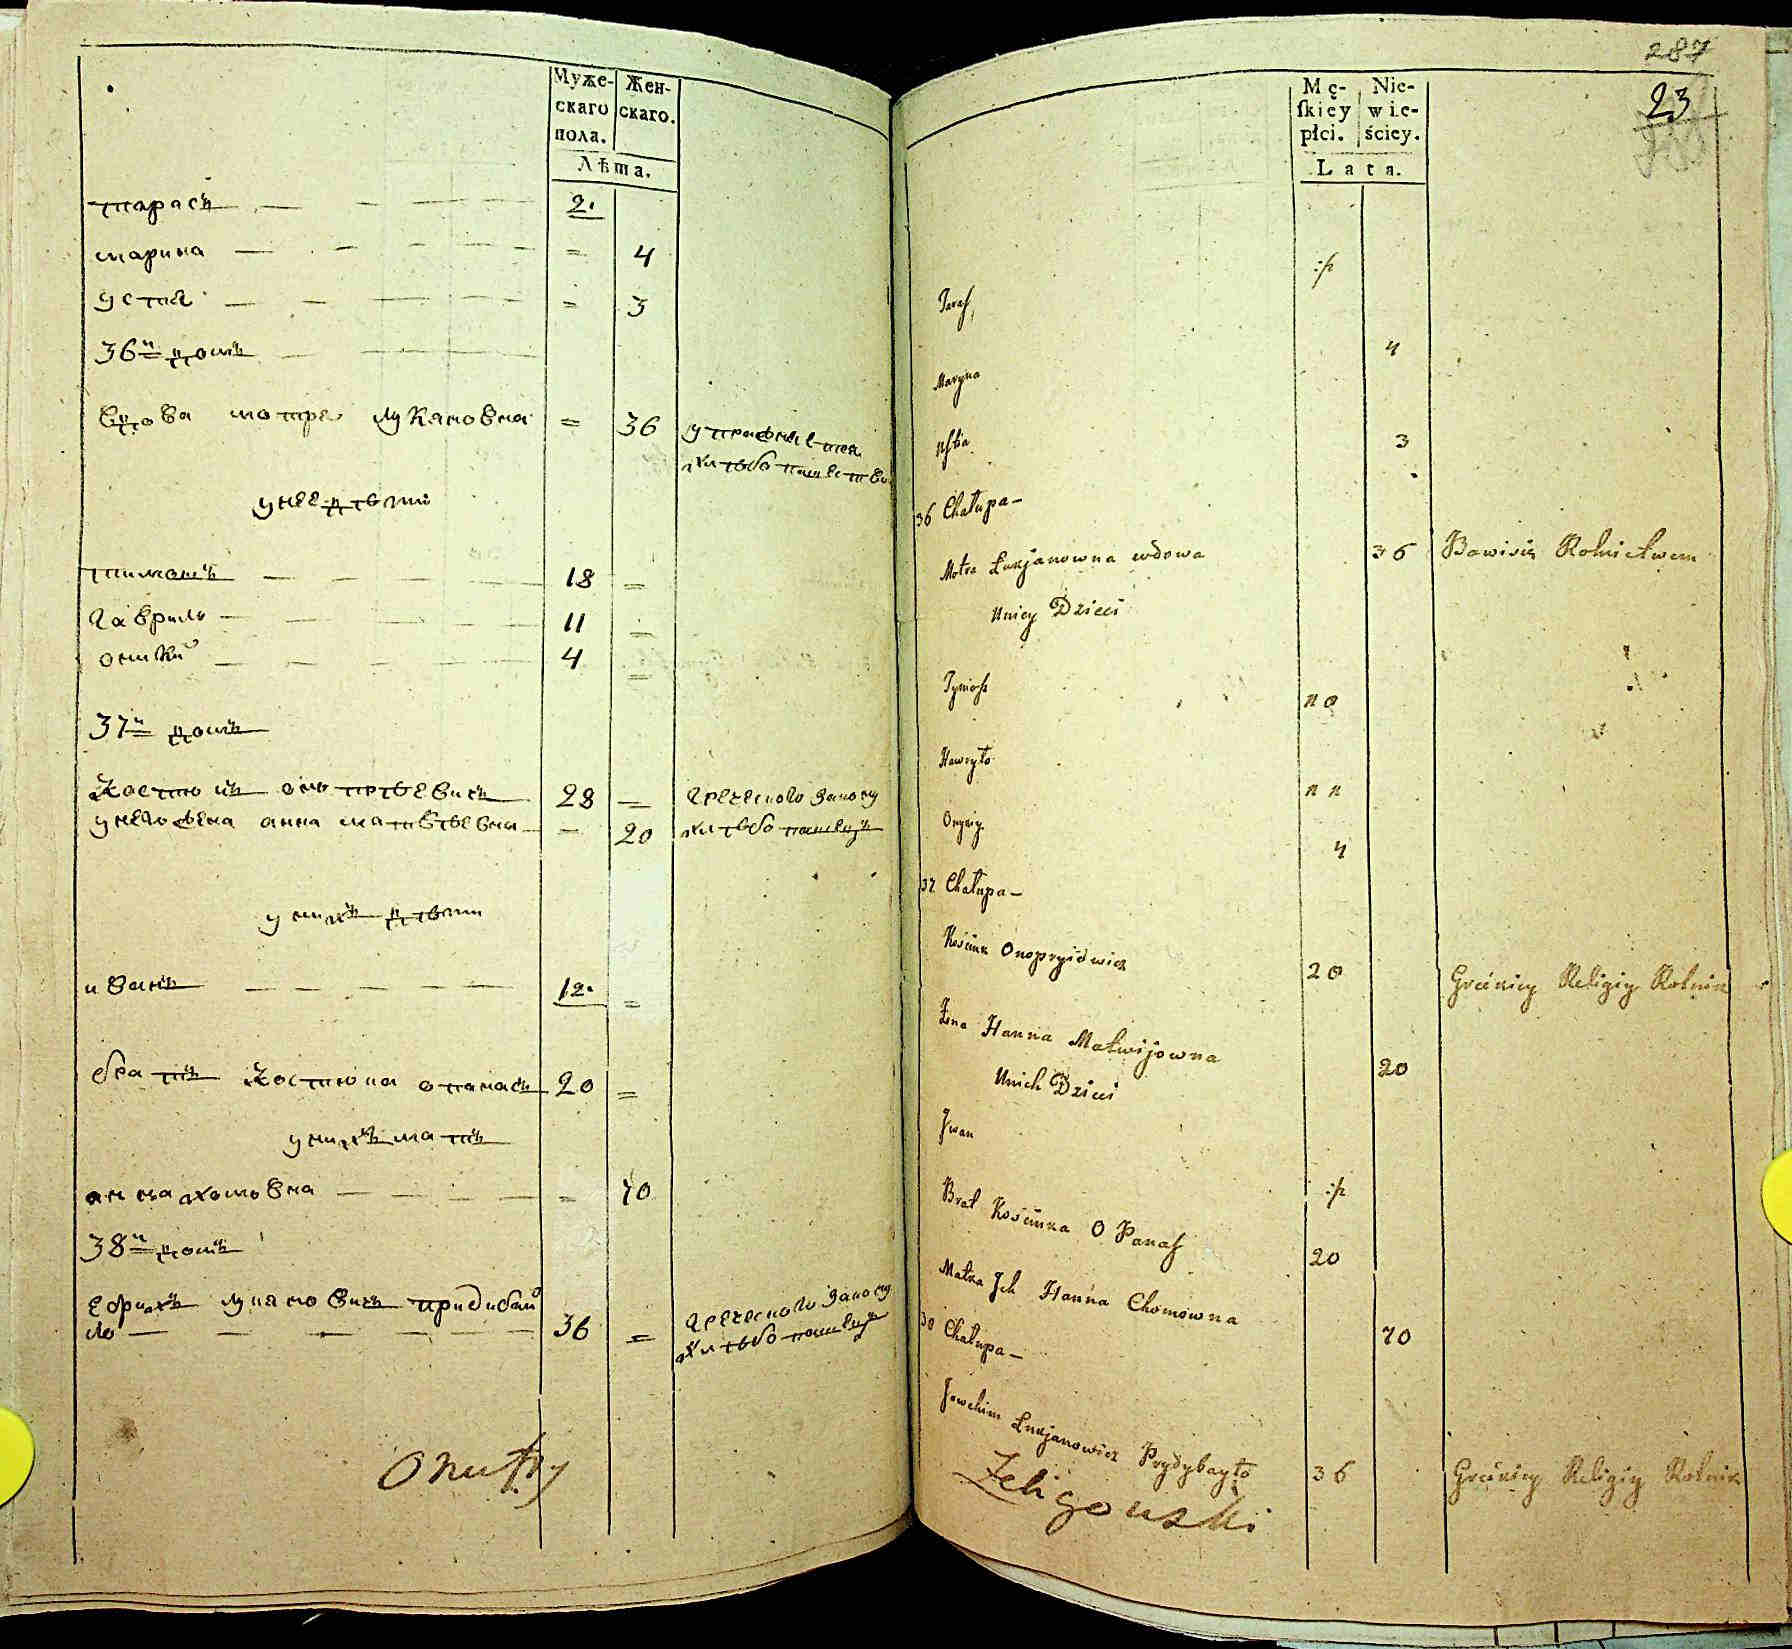 Муже-
скаго
пола.
Жен-
скаго.
Лѣта.
тарасъ 2.
марина = 4
устя = 3
36й домъ
вдова мотря лукяновна = 36
хлѣбопашество
у нее дѣти
тимошъ 18 =
гаврило 11 =
4 =
37й домъ
костюкъ 28 = греческого закону
у него жена анна матвѣевна = 20 хлѣбопашецъ
у нихъ дѣти
иванъ 12. =
братъ костюка опанасъ 20 =
у нихъ мать
анна хомовна = 70
38й домъ
ефимъ лукяновичъ придибай
ло 36 = греческого закону
хлѣбопашецъ
287
23
Mę-
ſkiey
płci.
Nie-
wie-
ściey.
Lata.
Taraſ,
Maryna 4
3
36 Chałupa
Motra Łukjanowna wdowa 36 Bawisię Rolnictwem
Uniey Dzieci
Tymosz
Hawryło
4
37 Chałupa
Onopryiowicz 20 Gréckiey Religiy Rolnik
Żona Hanna Matwijowna 20
Unich Dzieci
Jwan
Brat Kościuka O Panaſ 20
Matka Jch Hanna Chomowna 70
Chałupa
Jowchim Łukjanowicz Prydybayło 36 Gréckiey Religiy Rolnik
Żeligowski